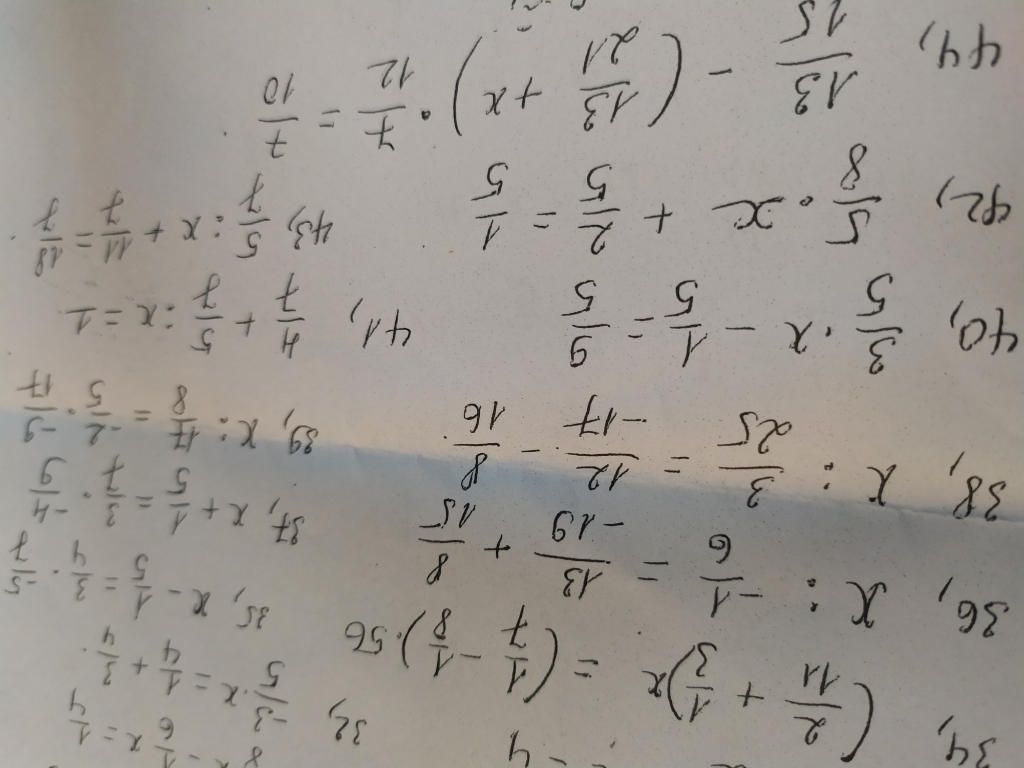 x - 1/6 x = 1/4
33, -3/5 . x = 1/4 + 3/4 .
34, (2/11 + 1/3)x = (1/7 - 1/8).56
35, x - 1/5 = 3/4 . -5/7
36, x : -1/6 = 13/-19 + 8/15
37, x + 1/5 = 3/7 . -4/9
38, x : 3/25 = 12/-17 - 8/16
39, x : 17/8 = -2/5 . -9/17
40, 3/5 . x - 1/5 = 9/5
41, 4/7 + 5/7 : x = 1
42, 5/8 . x + 2/5 = 1/5
43, 5/7 : x + 11/7 = 18/7 .
44, 13/15 - (13/21 + x) . 7/12 = 7/10 .